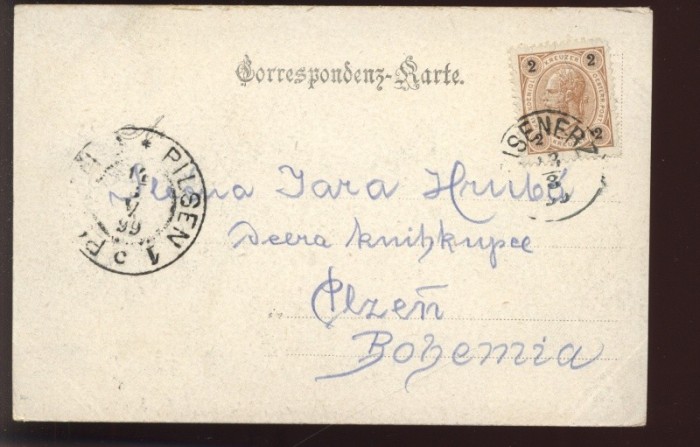 Correspondenz-Karte.
2 KREUZER 2
2 2
ISENERZ
3
99
* PILSEN 1
99
Jara Hrubá
dcera knihkupce
Plzeň
Bohemia